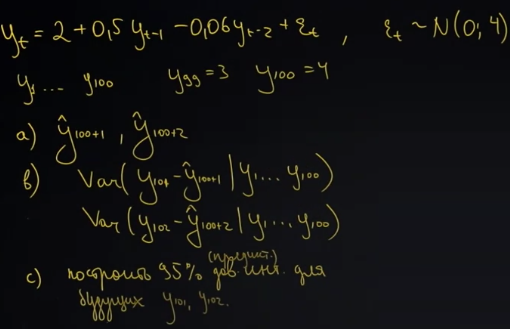 yₜ = 2 + 0,5 yₜ₋₁ - 0,06 yₜ₋₂ + εₜ , εₜ ~ N(0; 4)
y₁ ... y₁₀₀ y₉₉ = 3 y₁₀₀ = 4
a) ŷ₁₀₀₊₁ , ŷ₁₀₀₊₂
b) Var(y₁₀₁ - ŷ₁₀₀₊₁ | y₁ ... y₁₀₀)
Var(y₁₀₂ - ŷ₁₀₀₊₂ | y₁ ... y₁₀₀)
(предикт.)
c) построить 95% дов. инт. для
будущих y₁₀₁, y₁₀₂.